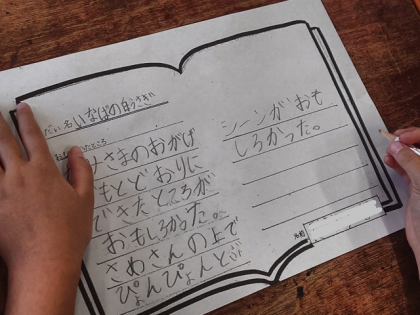 だい名 いなばの白うさぎ
ところ
さまのおがげ
もとどおりに
できたところが
おもしろかった。
さめさんの上で
ぴょんぴょんとぶ
シーンがおも
しろかった。
名前